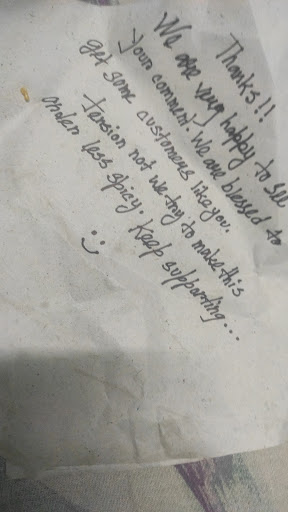 Thanks!!
We are very happy to see
your comment. We are blessed to
get some customers like you.
Tension not we try to make this
order less spicy. Keep supporting...
:-)